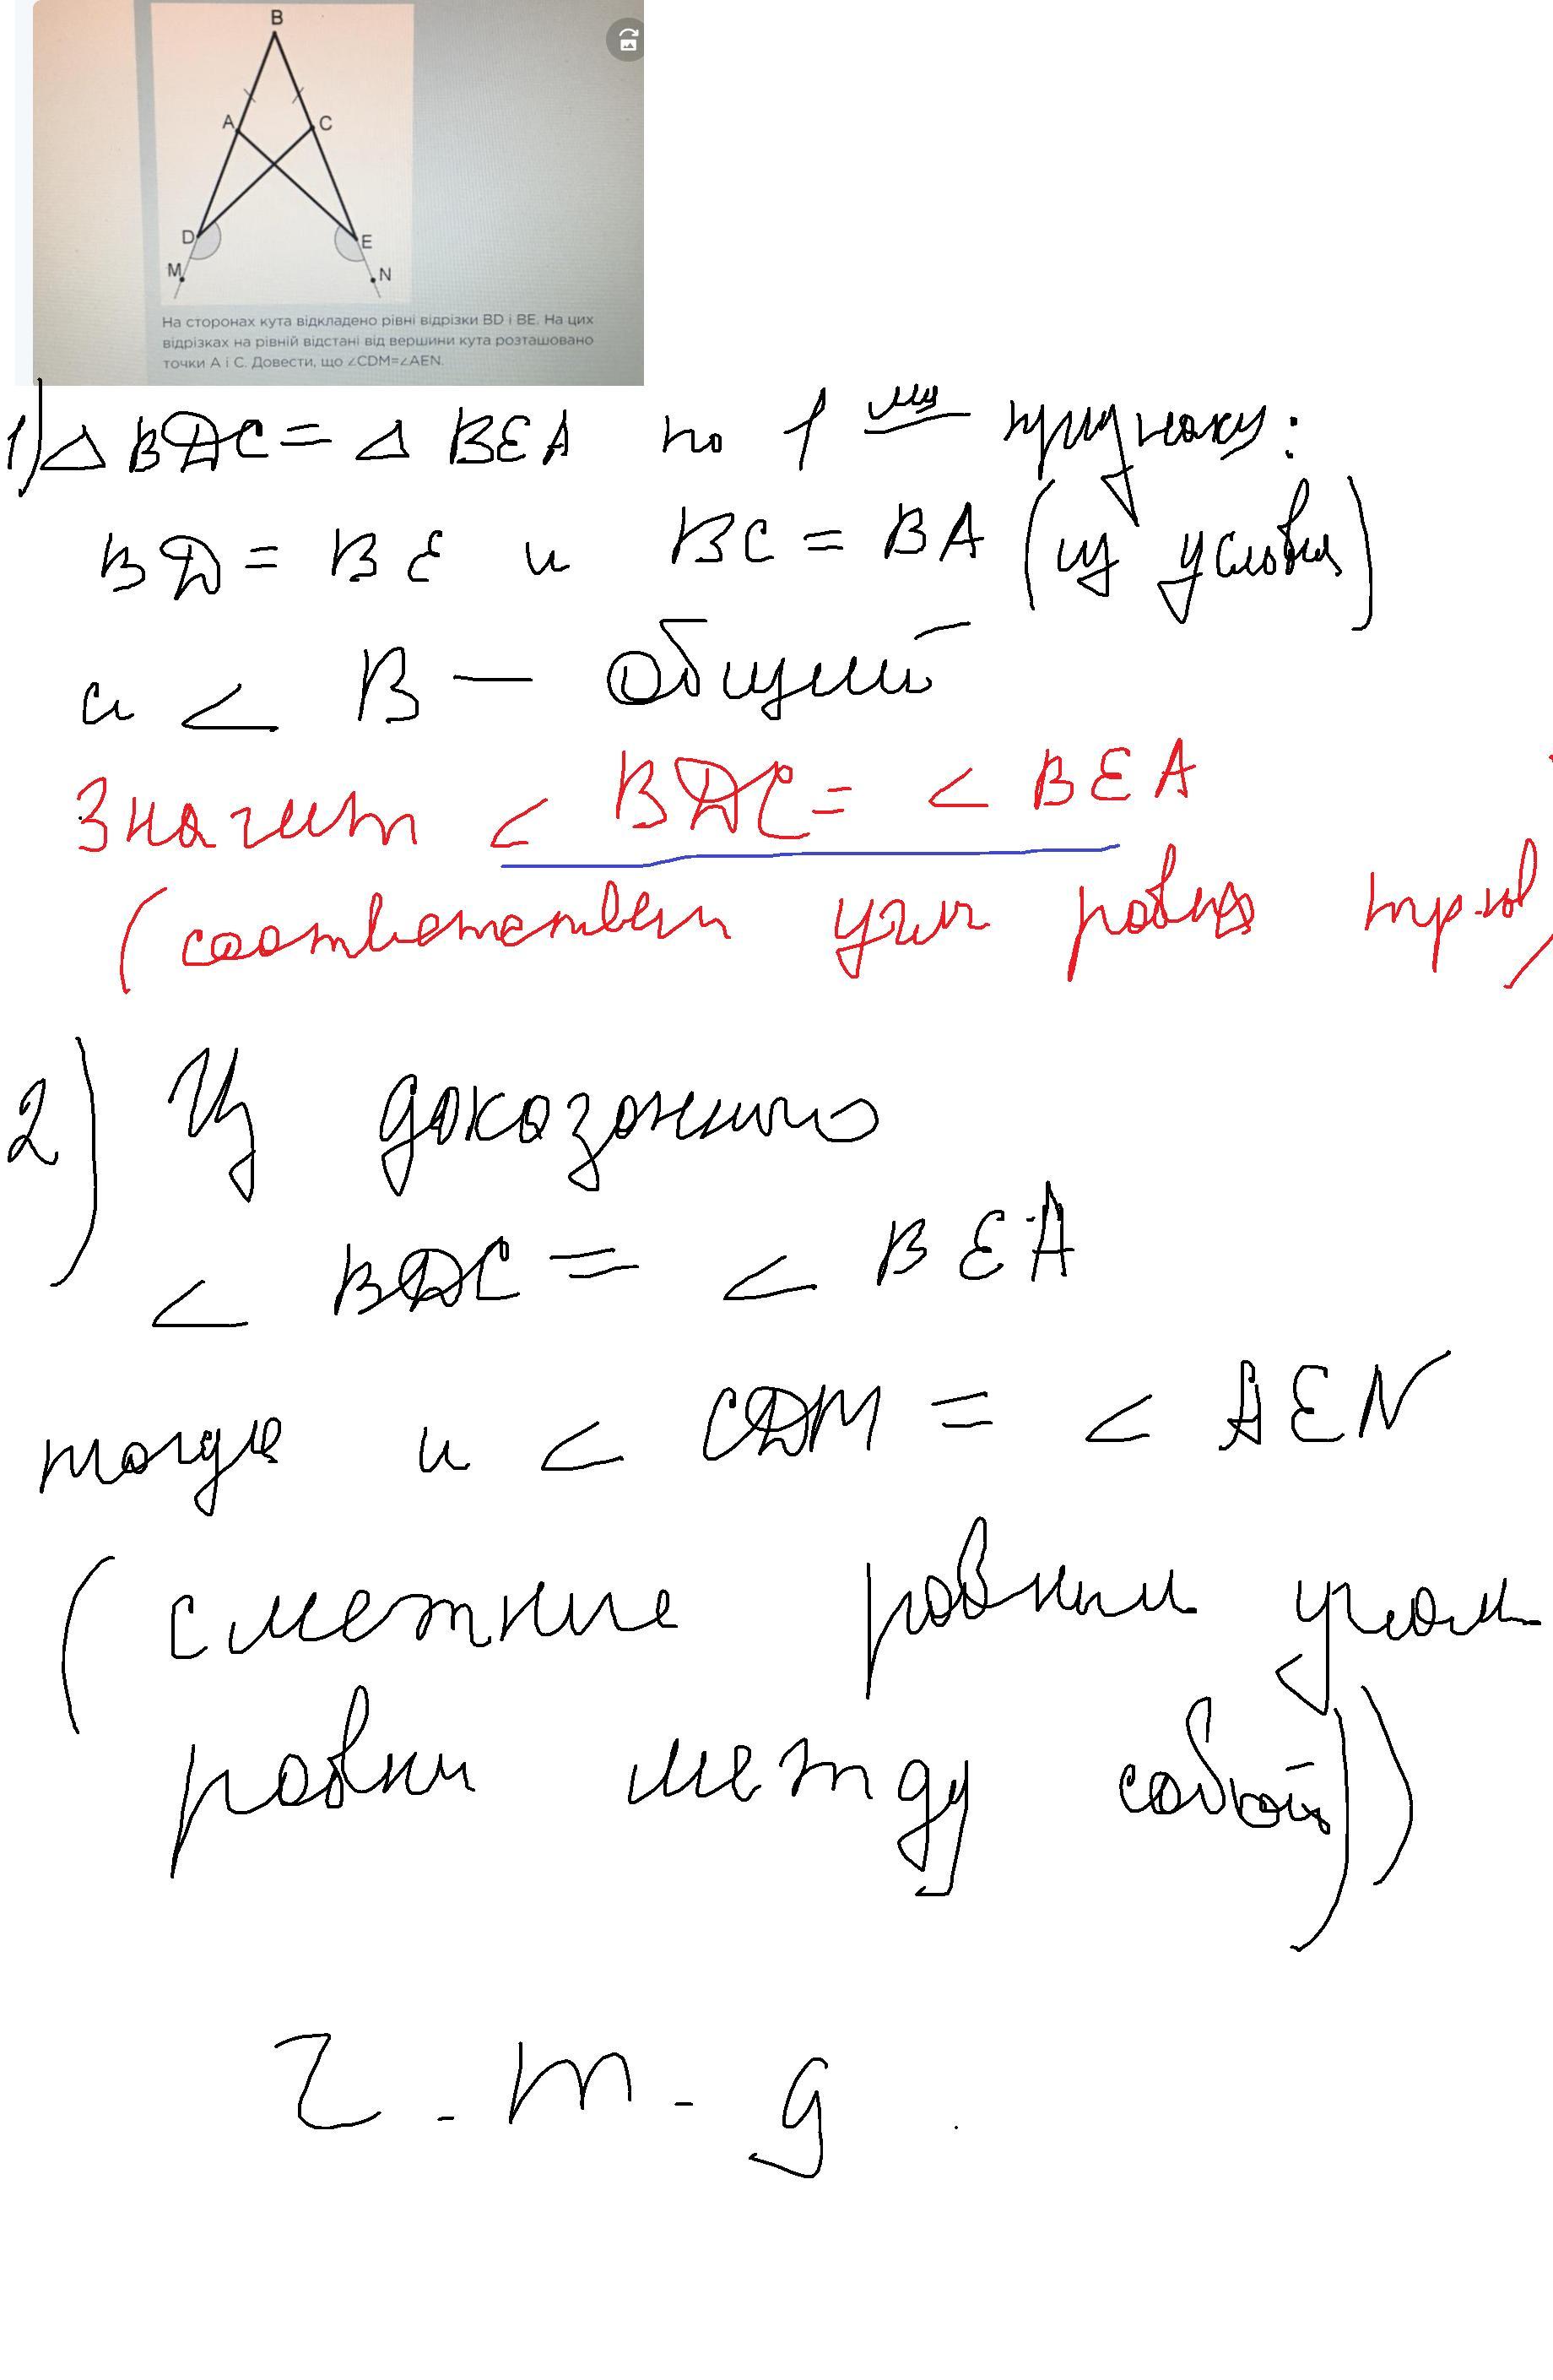 B
A C
D E
M N
На сторонах кута відкладено рівні відрізки BD і BE. На цих
відрізках на рівній відстані від вершини кута розташовано
точки A і C. Довести, що ∠CDM=∠AEN.
1) △ BDC = △ BEA по 1 му признаку:
BD = BE и BC = BA (из условия)
и ∠ B — общий
Значит ∠ BDC = ∠ BEA
(соответствен углы равных тр-ов)
2) Из доказанного
∠ BDC = ∠ BEA
тогда и ∠ CDM = ∠ AEN
(смежные равным углам
равны между собой))
ч. т. д.